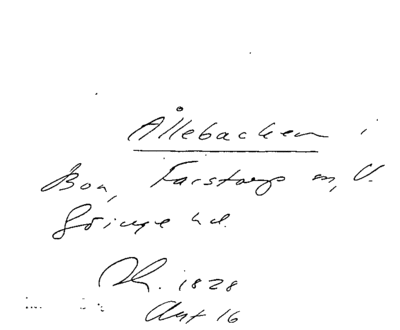 Ållebacken i
Boa, Farstorps sn, V.
Göinge hd.
Rk. 1828
Akt 16